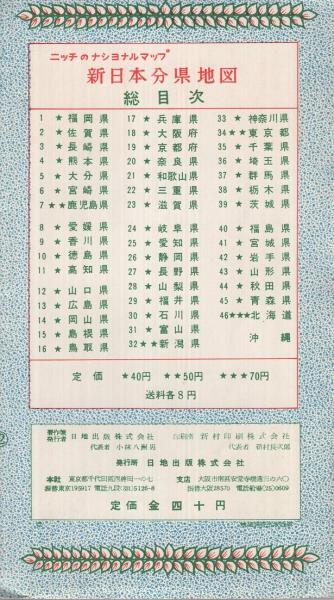 ニッチのナショナルマップ
新日本分県地図
総目次
1 ★ 福岡県
2 ★ 佐賀県
3 ★ 長崎県
4 ★ 熊本県
5 ★ 大分県
6 ★ 宮崎県
7 ★★鹿児島県
8 ★ 愛媛県
9 ★ 香川県
10 ★ 徳島県
11 ★ 高知県
12 ★ 山口県
13 ★ 広島県
14 ★ 岡山県
15 ★ 島根県
16 ★ 鳥取県
17 ★ 兵庫県
18 ★ 大阪府
19 ★ 京都府
20 ★ 奈良県
21 ★ 和歌山県
22 ★ 三重県
23 ★ 滋賀県
24 ★ 岐阜県
25 ★ 愛知県
26 ★ 静岡県
27 ★ 長野県
28 ★ 山梨県
29 ★ 福井県
30 ★ 石川県
31 ★ 富山県
32★★新潟県
33 ★ 神奈川県
34★★東京都
35 ★ 千葉県
36 ★ 埼玉県
37 ★ 群馬県
38 ★ 栃木県
39 ★ 茨城県
40 ★ 福島県
41 ★ 宮城県
42 ★ 岩手県
43 ★ 山形県
44 ★ 秋田県
45 ★ 青森県
46★★★北海道
沖縄
定価 ★40円 ★★50円 ★★★70円
送料各8円
著作兼発行者 日地出版株式会社
代表者 小林八洲男
印刷者 新村印刷株式会社
代表者 新村長次郎
発行所 日地出版株式会社
本社 東京都千代田区西神田一の七
振替東京195917 電話九段(331)5126-8
支店
振替大阪28570 電話船場(25)0609
定価金四十円